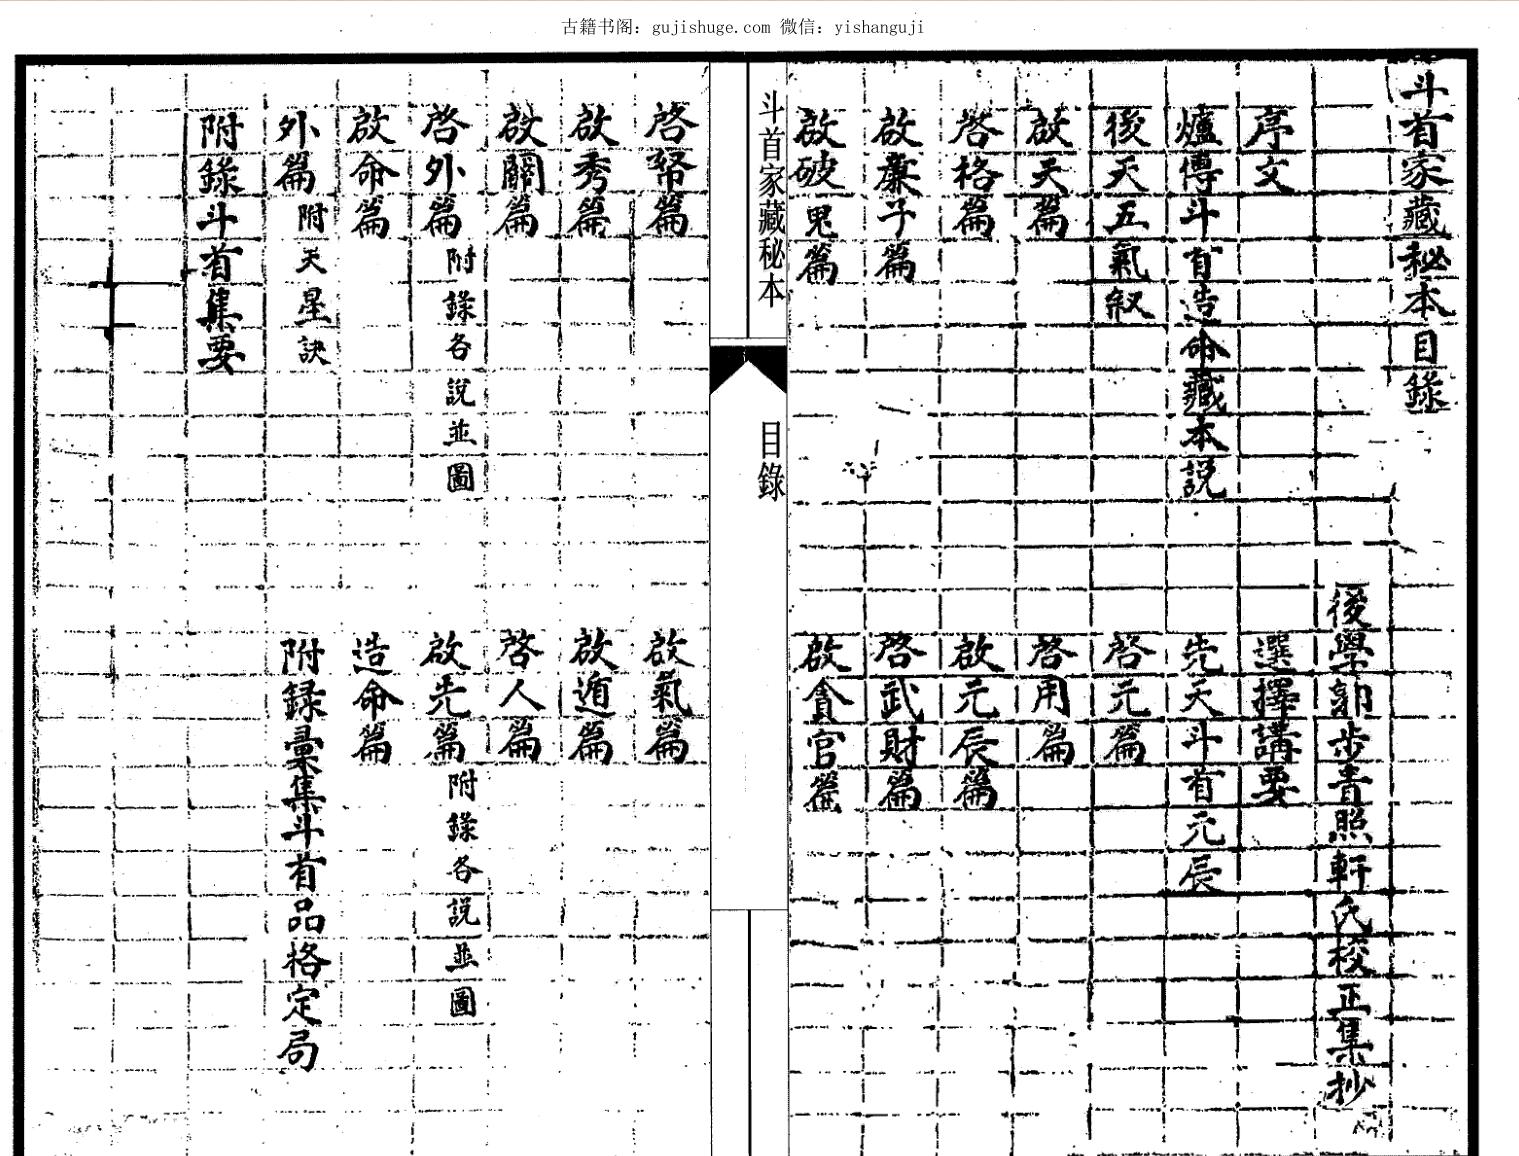 古籍书阁：gujishuge.com 微信：yishanguji
斗首家藏秘本目錄
後學郭步青照軒氏校正集抄
序文
選擇講要
爐傳斗首造命藏本説
先天斗首元辰
後天五氣叙
啓元篇
啟天篇
啓用篇
啓格篇
啟元辰篇
啟廉子篇
啓武財篇
啟破鬼篇
啟貪官篇
斗首家藏秘本
目錄
啓帑篇
啟氣篇
啟秀篇
啟遁篇
啟關篇
啓人篇
啓外篇 附錄各說並圖
啟先篇 附錄各說並圖
啟命篇
造命篇
外篇 附天星訣
附録彙集斗首品格定局
附錄斗首集要